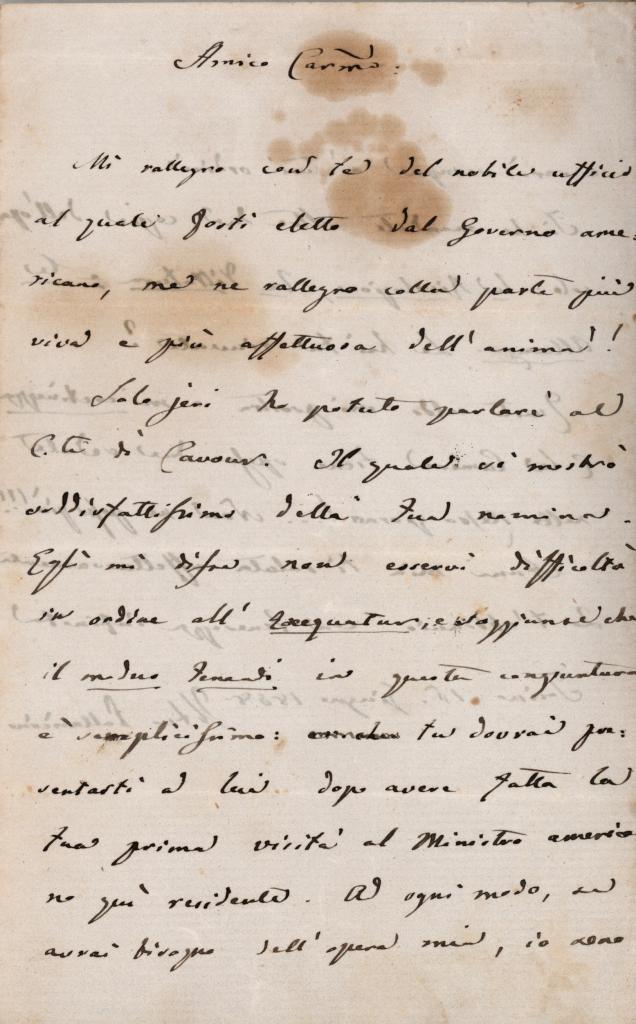 Amico Carmo:
Mi rallegro con te del nobile ufficio
al quale fosti eletto dal Governo ame-
ricano, me ne rallegro colla parte più
viva e più affettuosa dell'anima!
Solo jeri ho potuto parlare al
C.te di Cavour. Il quale si mostrò
soddisfattissimo della tua nomina.
Egli mi disse non esservi difficoltà
in ordine all' exequatur, e soggiunse che
il modus tenendi in questa congiuntura
è semplicissimo: tu dovrai pre-
sentarti a lui dopo avere fatta la
tua prima visita al Ministro america
no quì residente. Ad ogni modo, se
avrai bisogno dell'opera mia, io sono